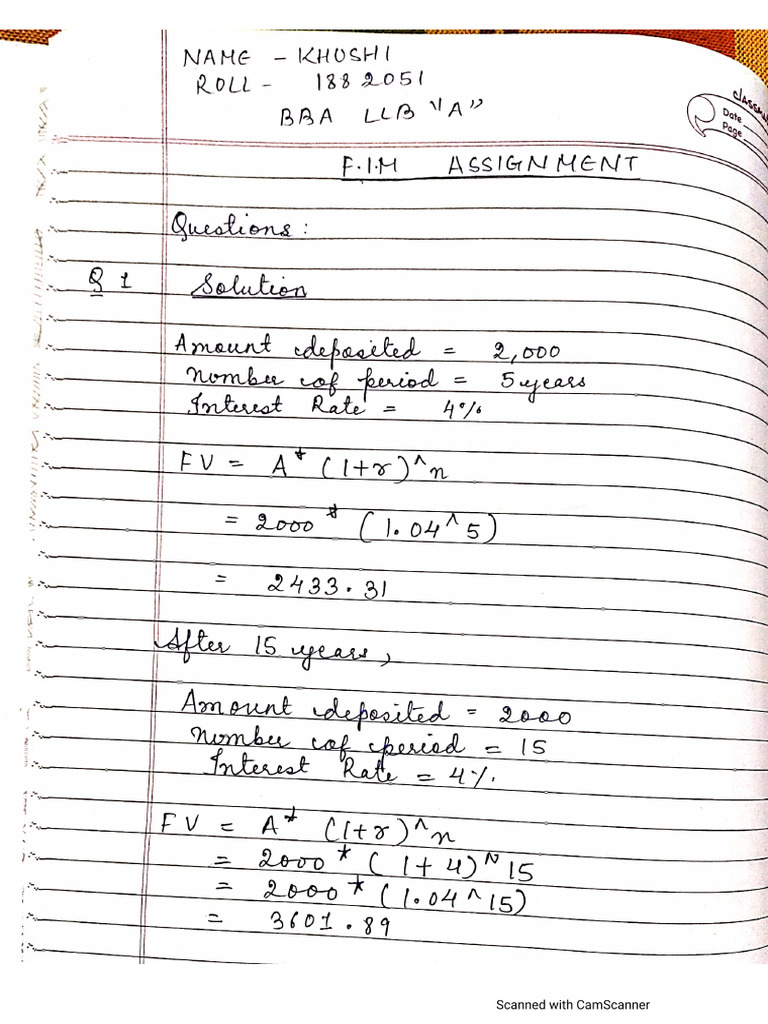 NAME - KHUSHI
ROLL - 1882051
BBA LLB "A"
classmate
Date
Page
F.I.M ASSIGNMENT
Questions:
Q 1 Solution
Amount deposited = 2,000
Number of period = 5 years
Interest Rate = 4%
FV = A* (1+r)^n
= 2000* (1.04^5)
= 2433.31
After 15 years,
Amount deposited = 2000
Number of period = 15
Interest Rate = 4%.
FV = A* (1+r)^n
= 2000* (1+4)^15
= 2000* (1.04^15)
= 3601.89
Scanned with CamScanner